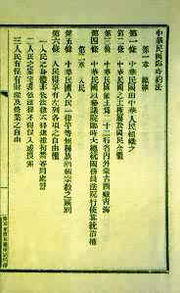 中華民國臨時約法
第一章 總綱
第一條 中華民國由中華人民組織之
第二條 中華民國之主權屬於國民全體
第三條 中華民國領土為二十二行省內外蒙古西藏青海
第四條 中華民國以參議院臨時大總統國務員法院行使其統治權
第二章 人民
第五條 中華民國人民一律平等無種族階級宗教之區別
第六條 人民得享有左列各項之自由權
一 人民之身體非依法律不得逮捕拘禁審問處罰
二 人民之家宅非依法律不得侵入或搜索
三 人民有保有財產及營業之自由